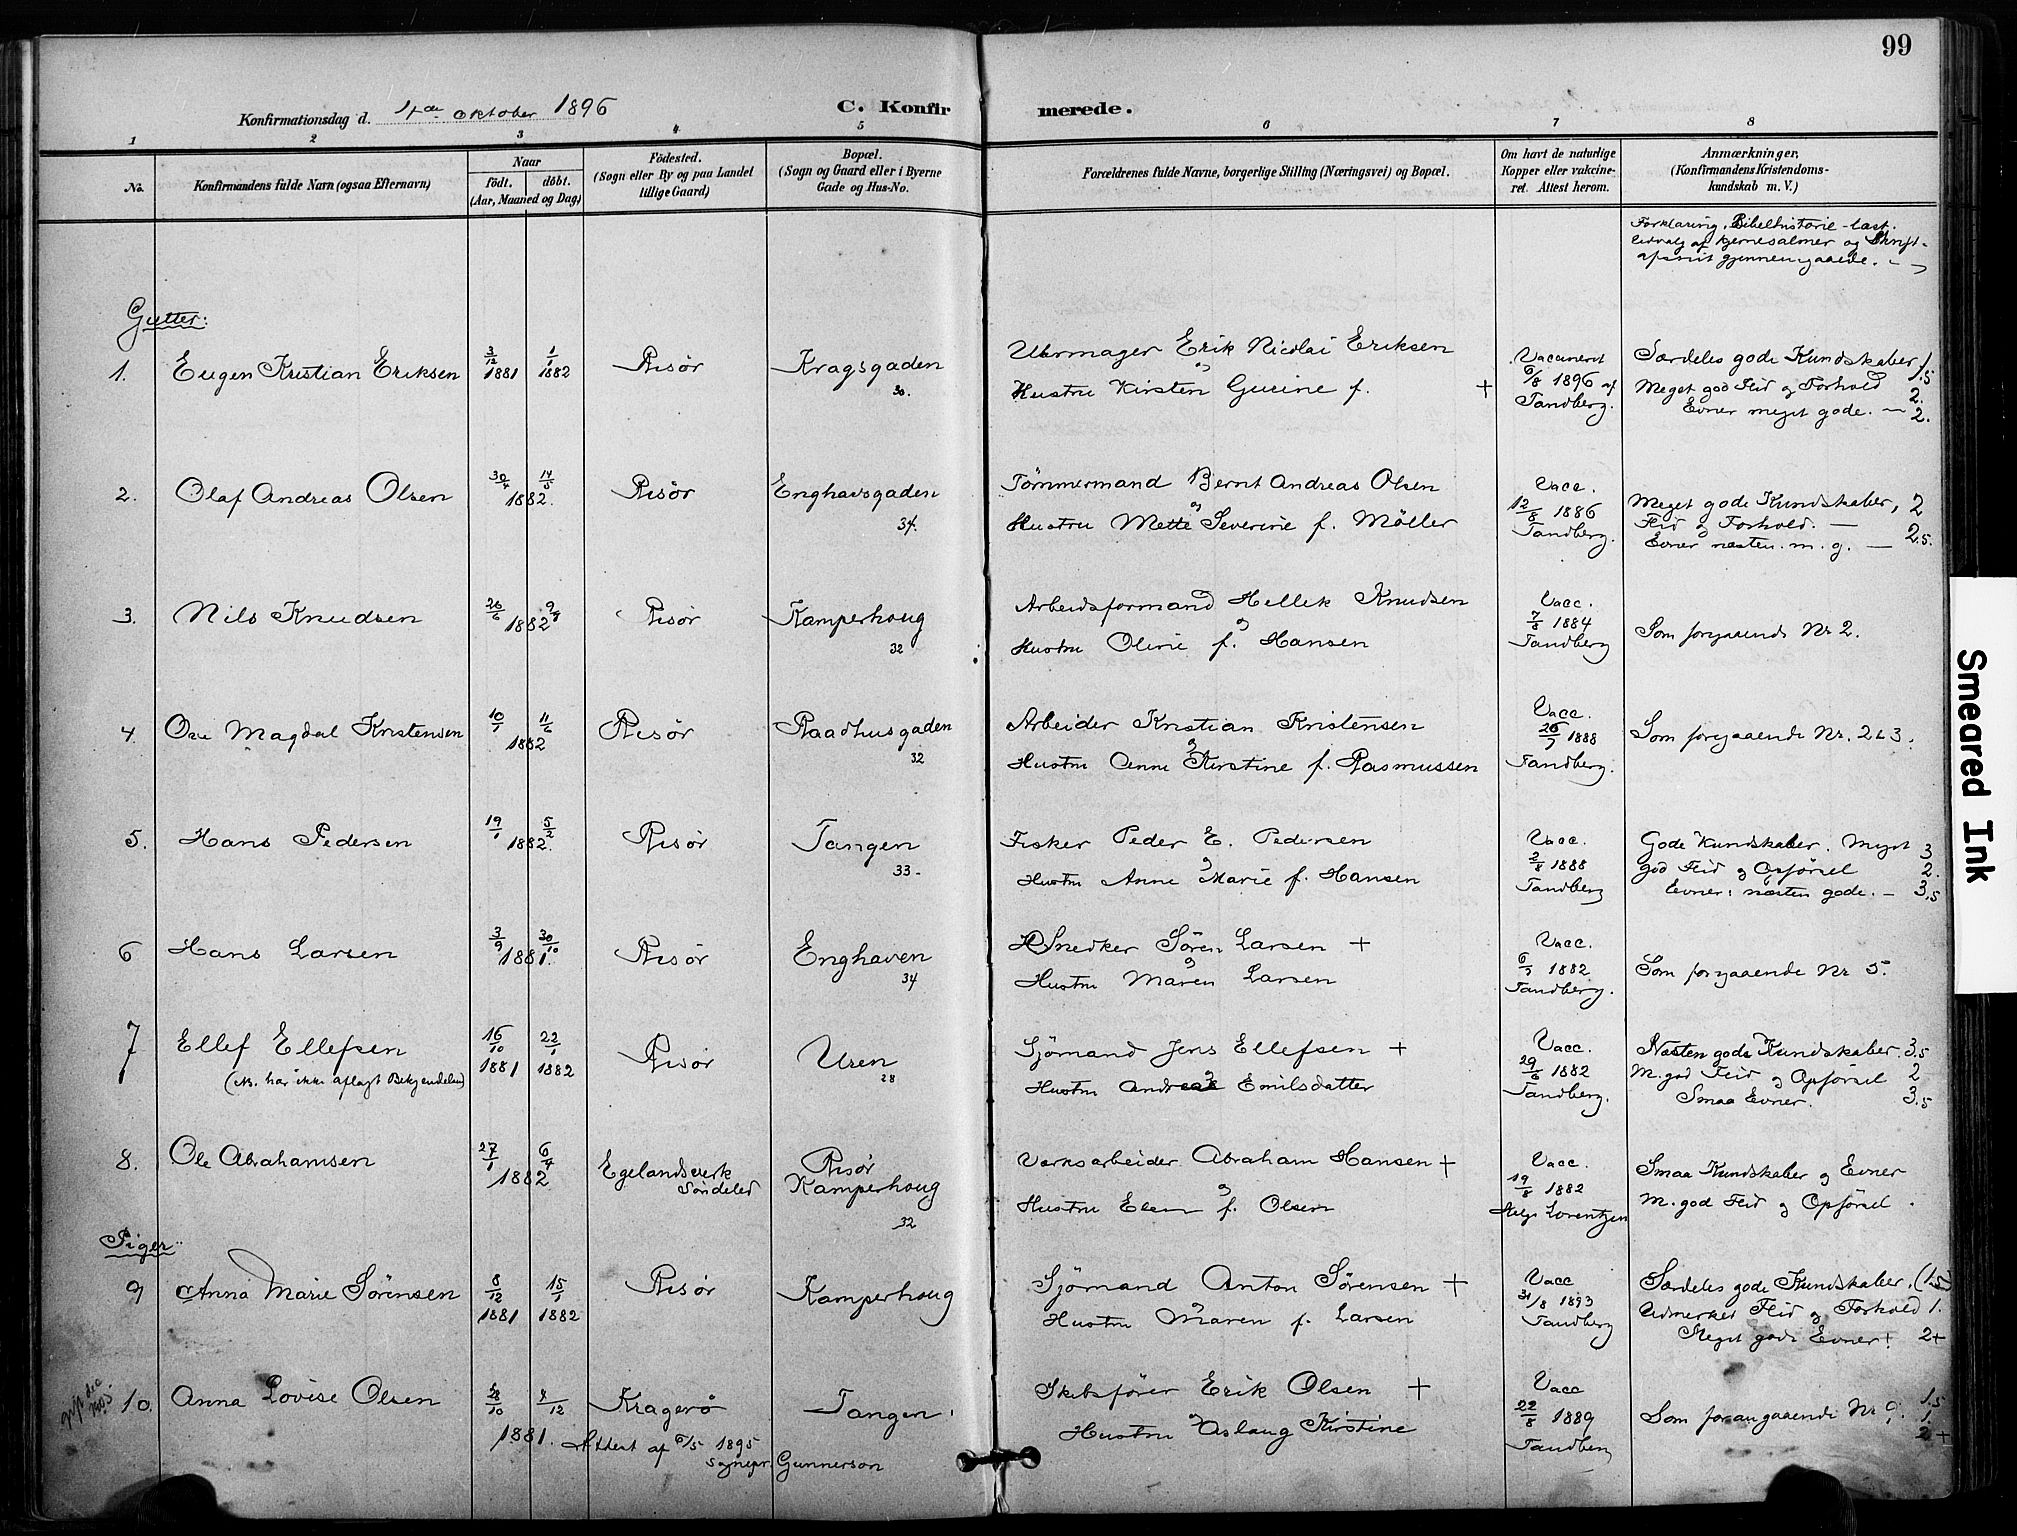 99
Konfirmationsdag d. 4de Oktober 1896
C. Konfirmerede.
1 2 3 4 5 6 7 8
No.
Konfirmandens fulde Navn (ogsaa Efternavn)
Naar
födt. döbt.
(Aar, Maaned og Dag)
Födested.
(Sogn eller By og paa Landet
tillige Gaard)
Bopæl.
(Sogn og Gaard eller i Byerne
Gade og Hus-No.
Forældrenes fulde Navne, borgerlige Stilling (Næringsvei) og Bopæl.
Om havt de naturlige
Kopper eller vakcine-
ret. Attest herom.
Anmærkninger,
(Konfirmandens Kristendoms-
kundskab m. V.)
Forklaring, Bibelhistorie - læst.
Udvalg af Kjernesalmer og Skrift-
afsnit gjennemgaaede.
Gutter:
1. Eugen Kristian Eriksen
3/12 1881
1/1 1882
Risør
Kragsgaden
30.
Uhrmager Erik Nicolai Eriksen
og
Hustru Kirsten Gurine f. +
Vaccineret
6/8 1896 af
Tandberg.
Særdeles gode Kundskaber 1.5
Meget god Flid og Forhold 2.
Evner meget gode. — 2.
2. Olaf Andreas Olsen
30/4 14/5
1882.
Risør
Enghavsgaden
34.
Tömmermand Bernt Andreas Olsen
og
Hustru Mette Severine f. Möller
Vacc.
12/8 1886
Tandberg.
Meget gode Kundskaber, 2
Flid og Forhold. —
Evner næsten m. g. — 2.5.
3. Nils Knudsen
26/6 9/8
1882
Risør
Kamperhoug
32
Arbeidsformand Hellek Knudsen
og
Hustru Oline f. Hansen
Vacc.
7/8 1884
Tandberg
Som forgaaende Nr 2.
4. Ove Magdal Kristensen
10/1 11/6
1882
Risør
Raadhusgaden
32
Arbeider Kristian Kristensen
og
Hustru Anne Kirstine f. Rasmussen
Vacc.
26/7 1888
Tandberg.
Som forgaaende Nr. 2 & 3.
5. Hans Pedersen
19/1 5/2
1882.
Risør
Tangen
33.
Fisker Peder E. Pedersen
og
Hustru Anne Marie f. Hansen
Vacc.
2/8 1888
Tandberg
Gode Kundskaber. Meget 3
god Flid og Opførsel 2.
Evner: næsten gode. — 3.5
6 Hans Larsen
3/9 30/10
1881.
Risør
Enghaven
34
Snedker Sören Larsen +
og
Hustru Maren Larsen
Vacc.
6/7 1882
Tandberg.
Som forgaaende Nr 5.
7 Ellef Ellefsen
(NB. har ikke aflagt Bekjendelse)
16/10 1881
22/1 1882
Risør
Uren
28
Sjömand Jens Ellefsen +
og
Hustru Andrea Emilsdatter
Vacc.
29/6 1882
Tandberg.
Næsten gode Kundskaber. 3.5
M. god Flid og Opførsel 2
Smaa Evner. 3.5
8. Ole Abrahamsen
27/1 6/4
1882
Egelandsverk
Söndeled
Risør
Kamperhoug
32
Værksarbeider Abraham Hansen +
og
Hustru Elen f. Olsen
Vacc.
19/8 1882
Helge Lorentzen
Smaa Kundskaber og Evner
M. god Flid og Opførsel.
Piger:
9 Anna Marie Sørensen
8/12 1881
15/1 1882
Risør
Kamperhoug
Sjömand Anton Sørensen +
Hustru Maren f. Larsen
Vacc
31/8 1893
Tandberg
Særdeles gode Kundskaber. (1.5)
Udmerket Flid og Forhold 1.
Meget gode Evner! 2+
10. Anna Lovise Olsen
28/10 /12
1881.
Kragerö
Attest af 6/5 1895
Sognepr. Gunnerson
Tangen
Skibsfører Erik Olsen +
og
Hustru Aslaug Kirstine
Vacc
22/8 1889
Tandberg
Som forangaaende Nr 9. 1.5
1.
2+
Smeared Ink